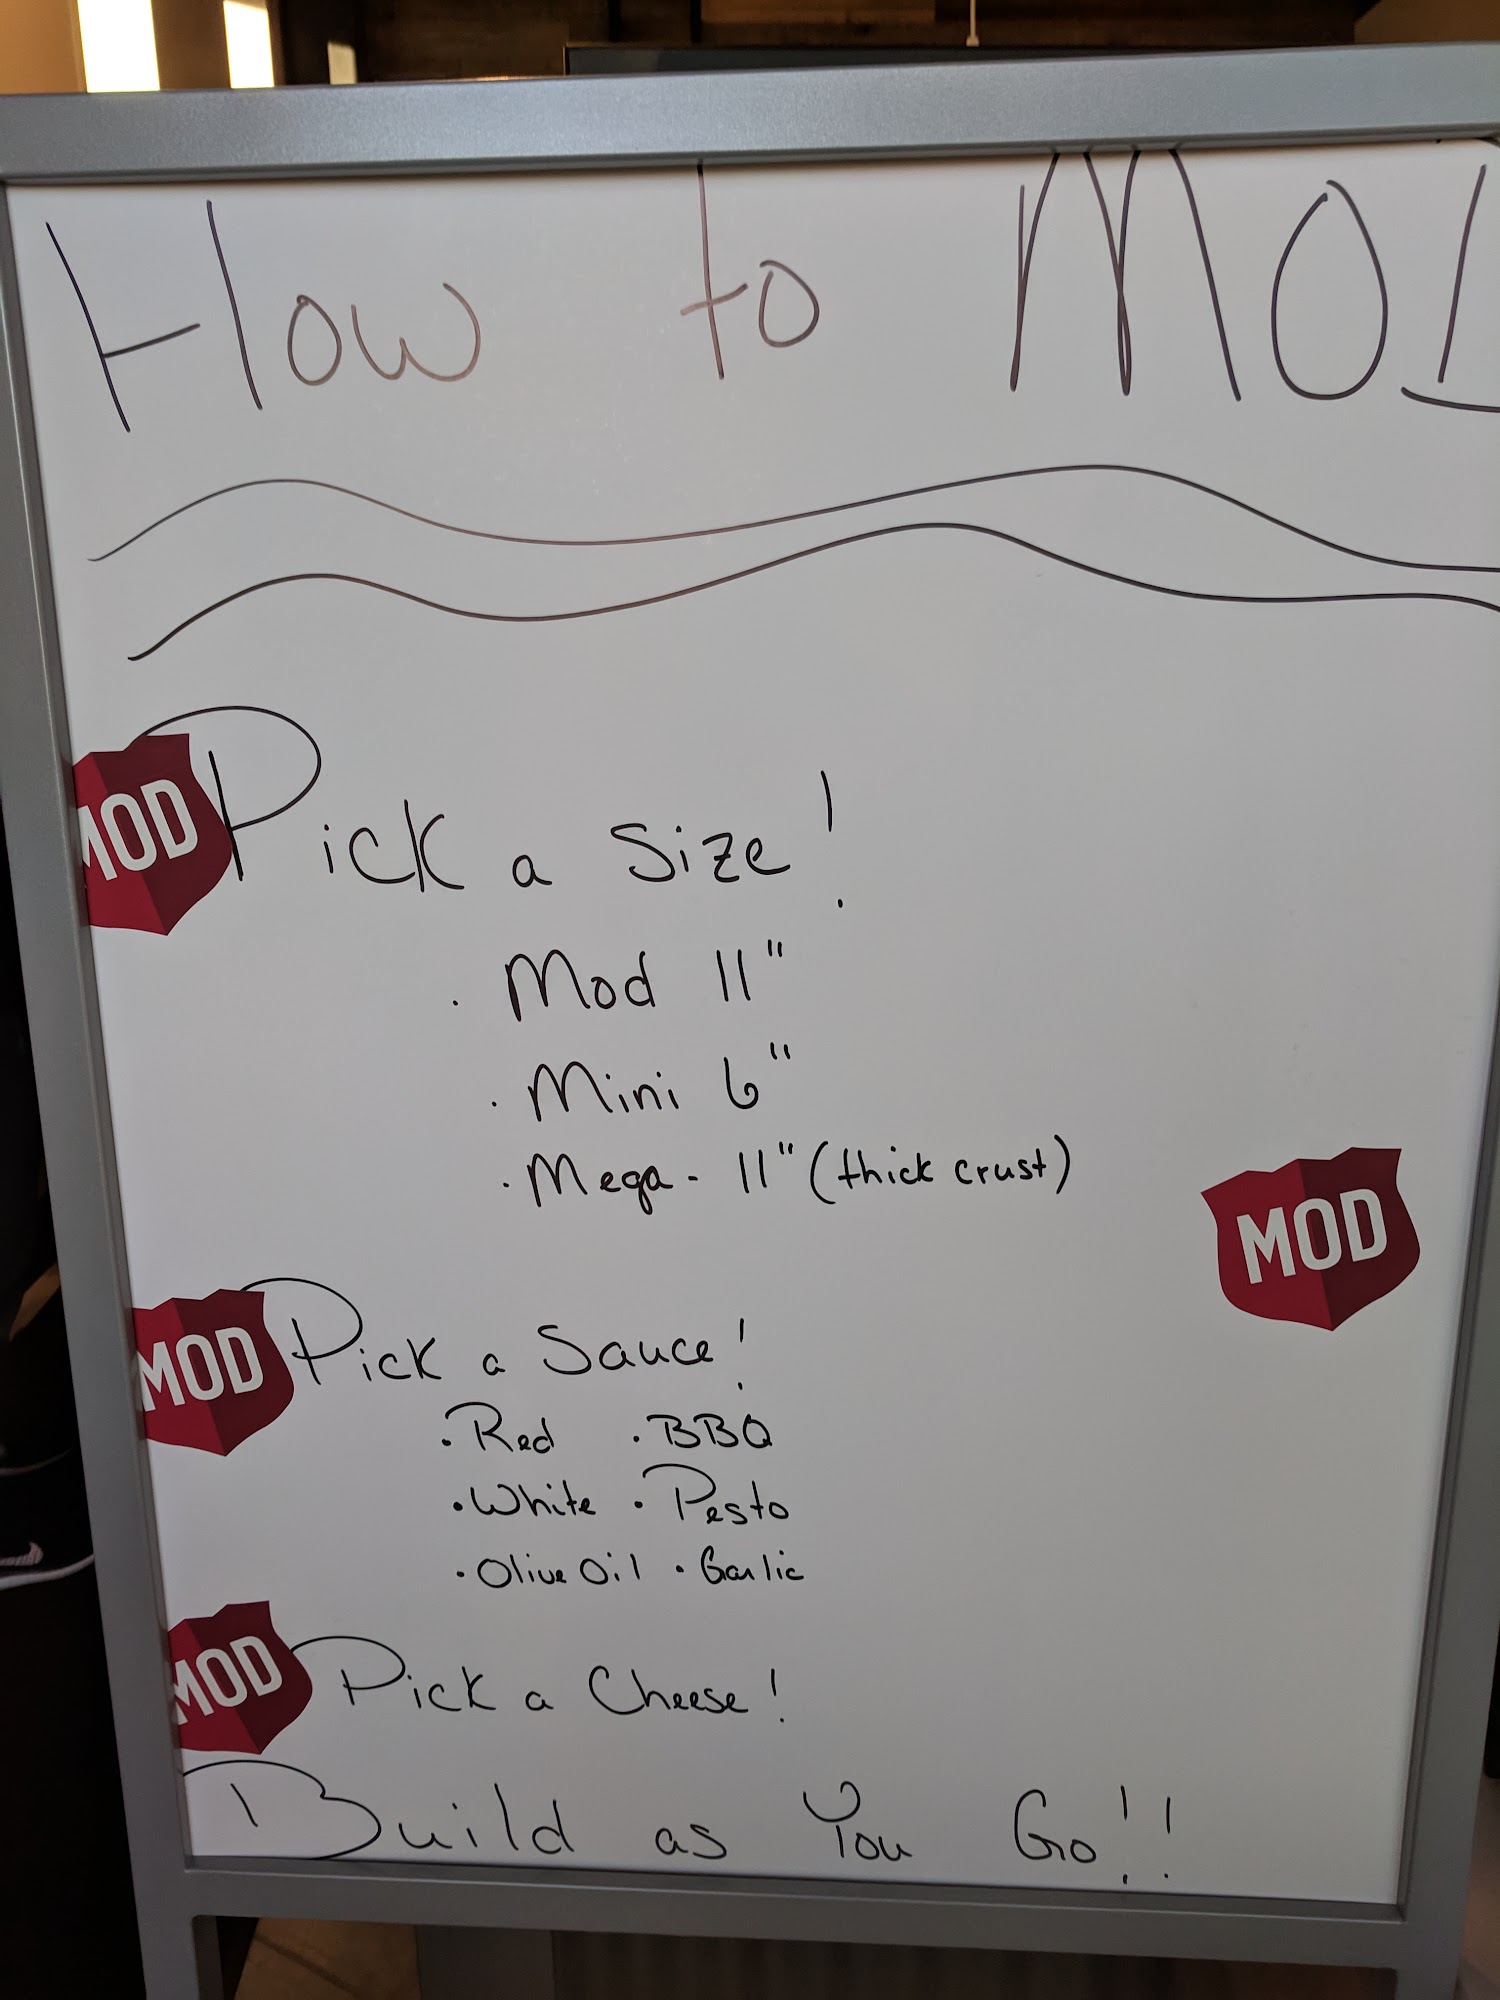 How to MOD
MOD Pick a Size!
· Mod 11"
· Mini 6"
· Mega - 11" (thick crust)
MOD
MOD Pick a Sauce!
· Red · BBQ
· White · Pesto
· Olive Oil · Garlic
MOD Pick a Cheese!
Build as You Go!!